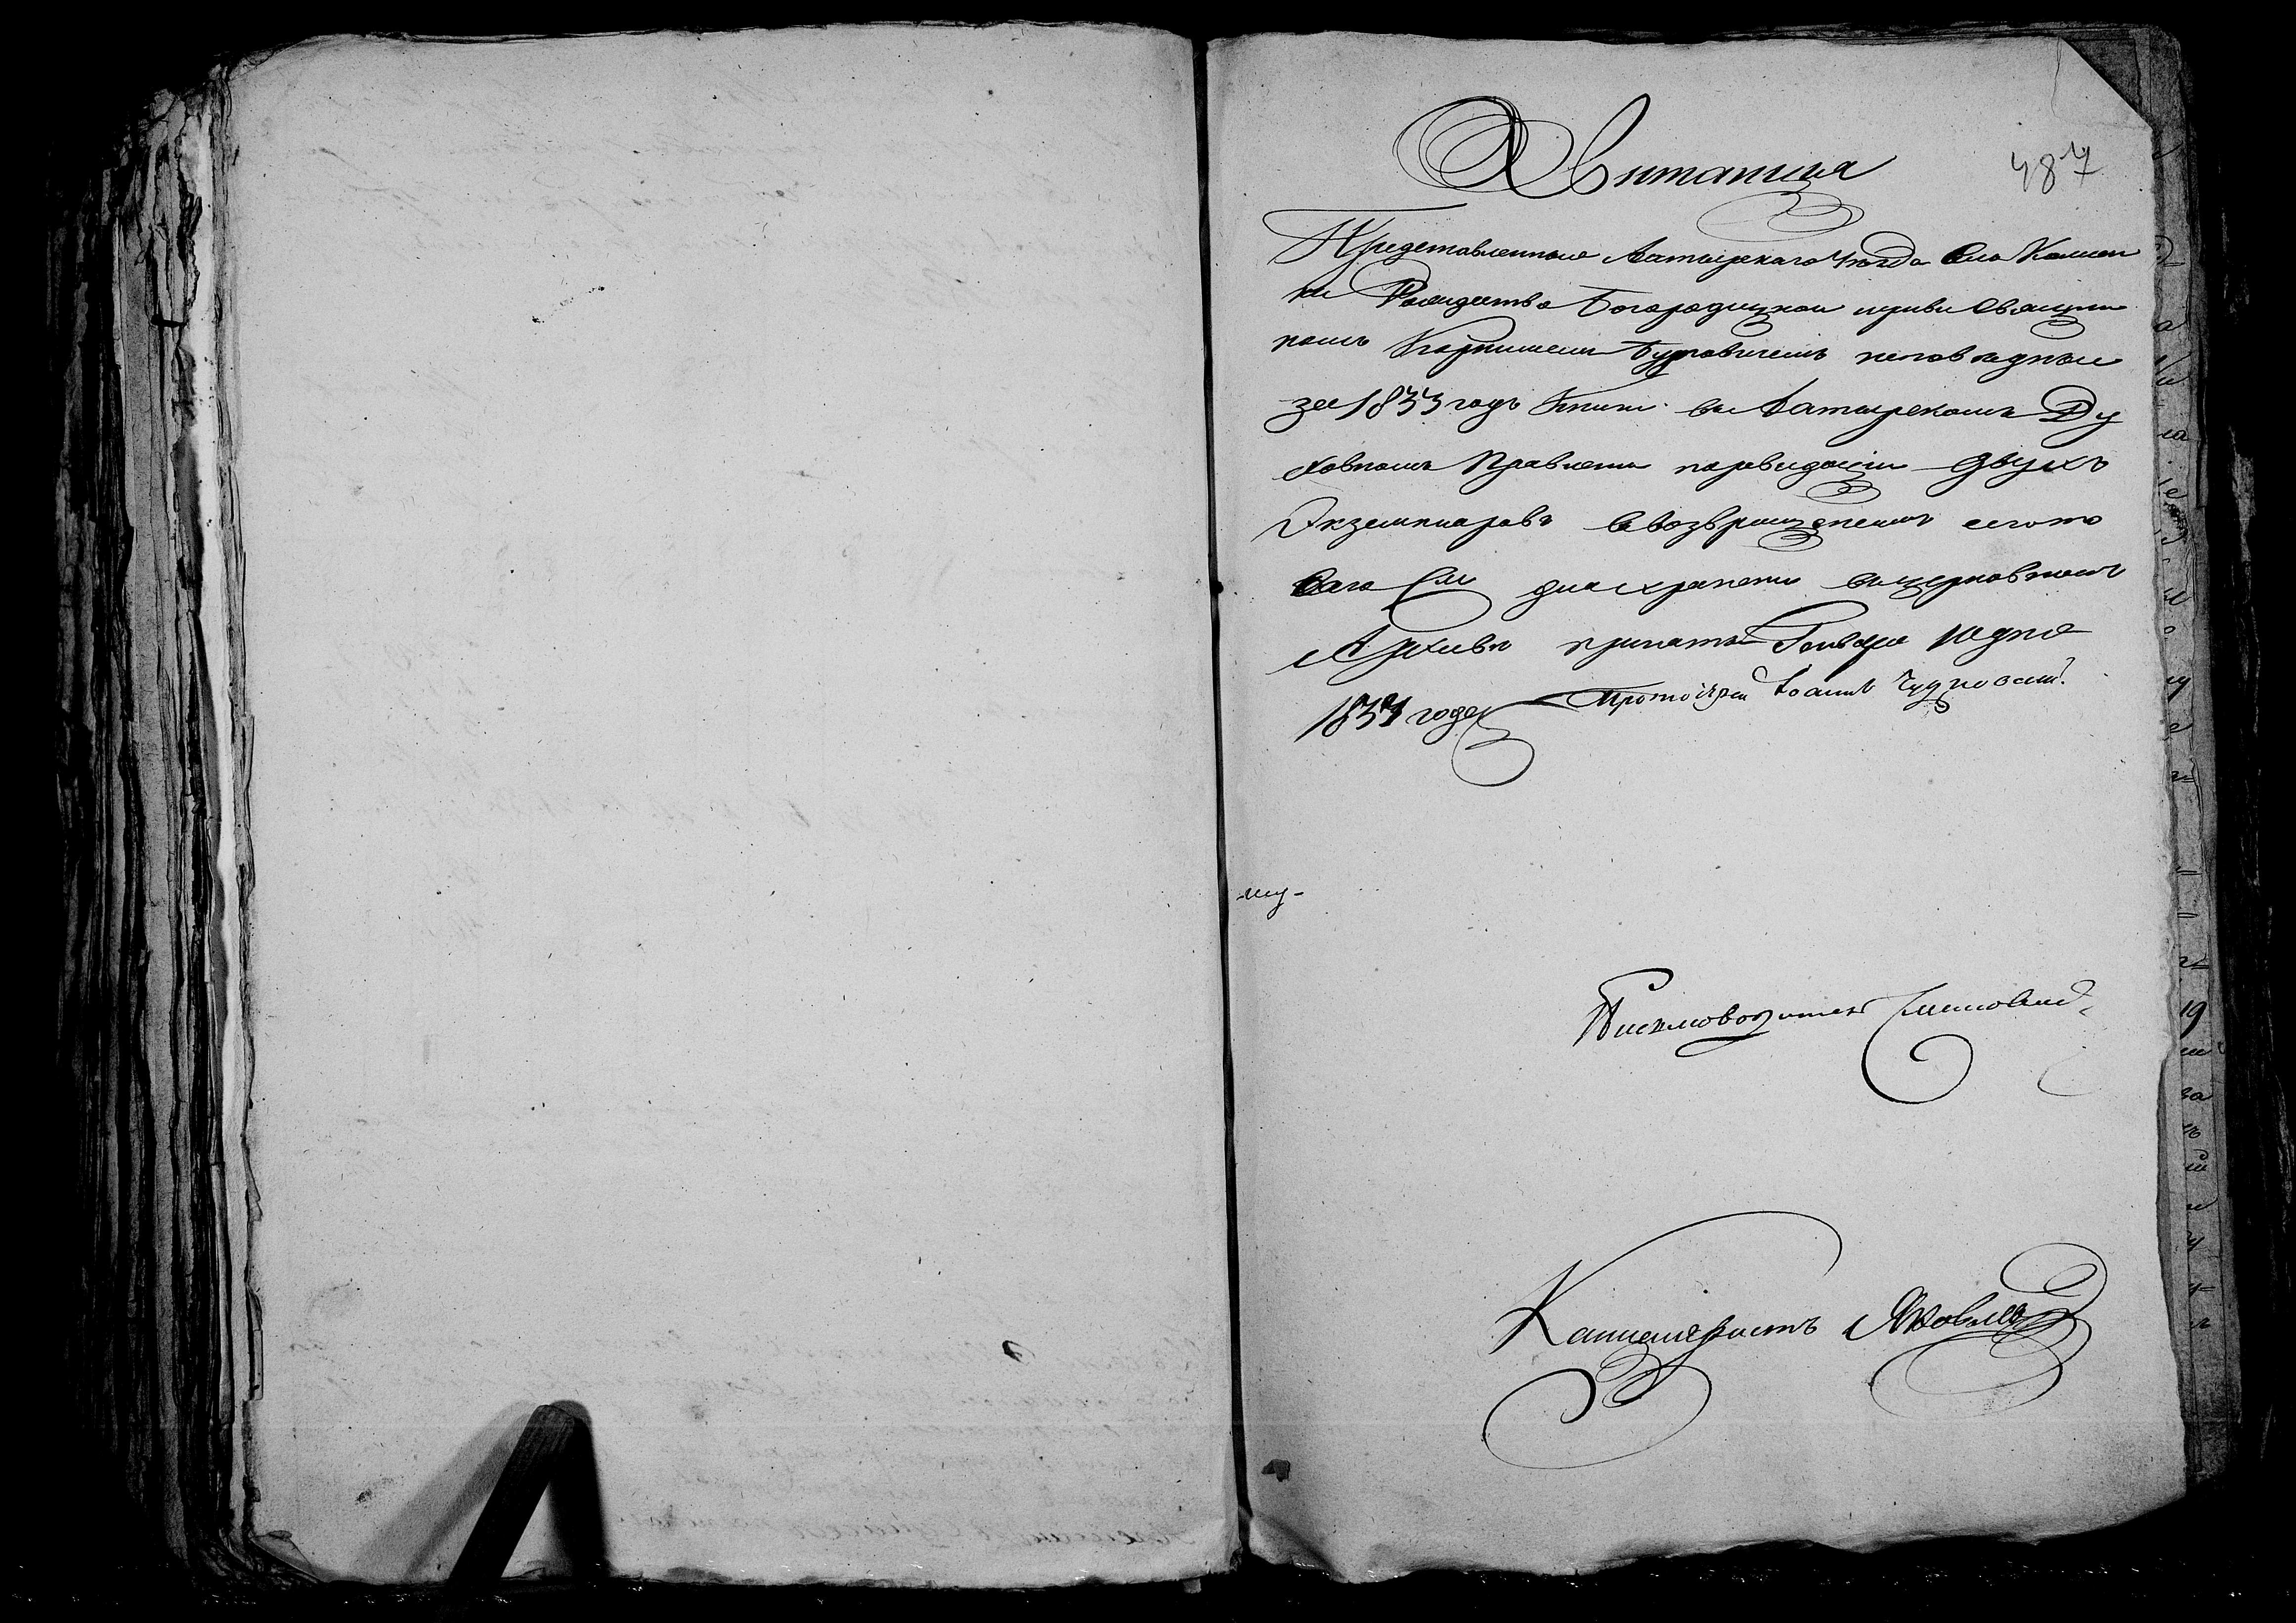 Квитанция
487
Представленные Ахтырскаго Уезда Села Камен
ки Рождество Богородичной церкви Священни
комъ Буткевичемъ исповедные
за 1833 годъ Книги въ Ахтырскомъ Ду
ховномъ Правлении двухъ
Экземпляровъ свозвращениемъ
для хранения въ церковномъ
Архиве приняты Генваря 10 дня
1833 года Протоіерей Іоаннъ
му-
Писмоводитель
Канцеляристъ Яковлевъ